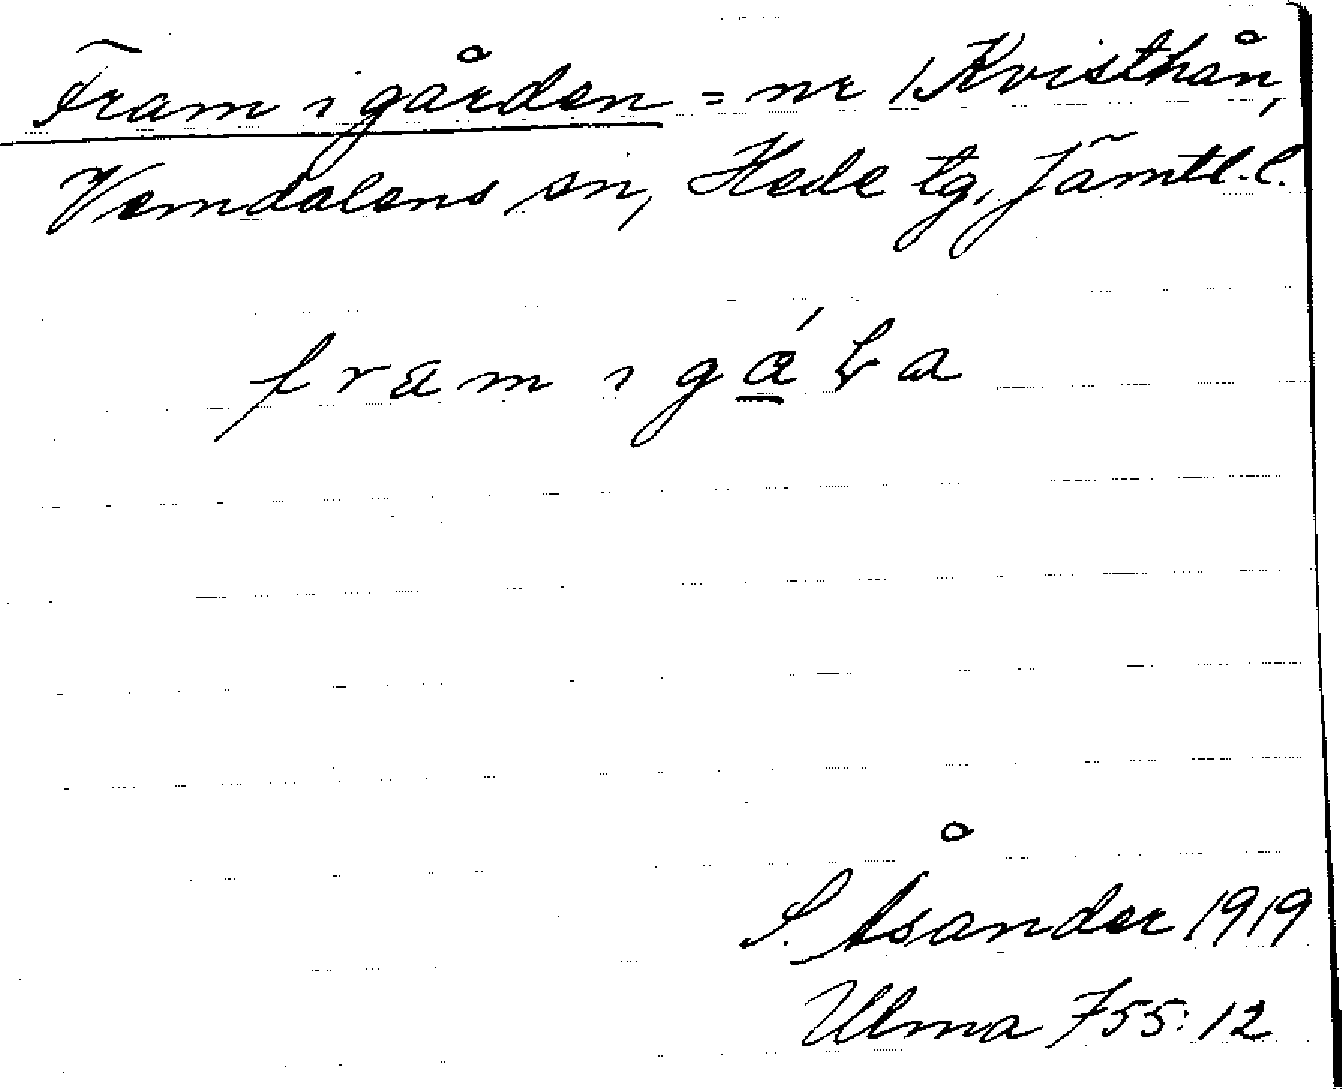 Fram i gården = nr 1 Kvisthån,
Vemdalens sn, Hede tg, Jämtl. l.
fram i gá̱ɽa
S. Åsander 1919
Ulma 755:12